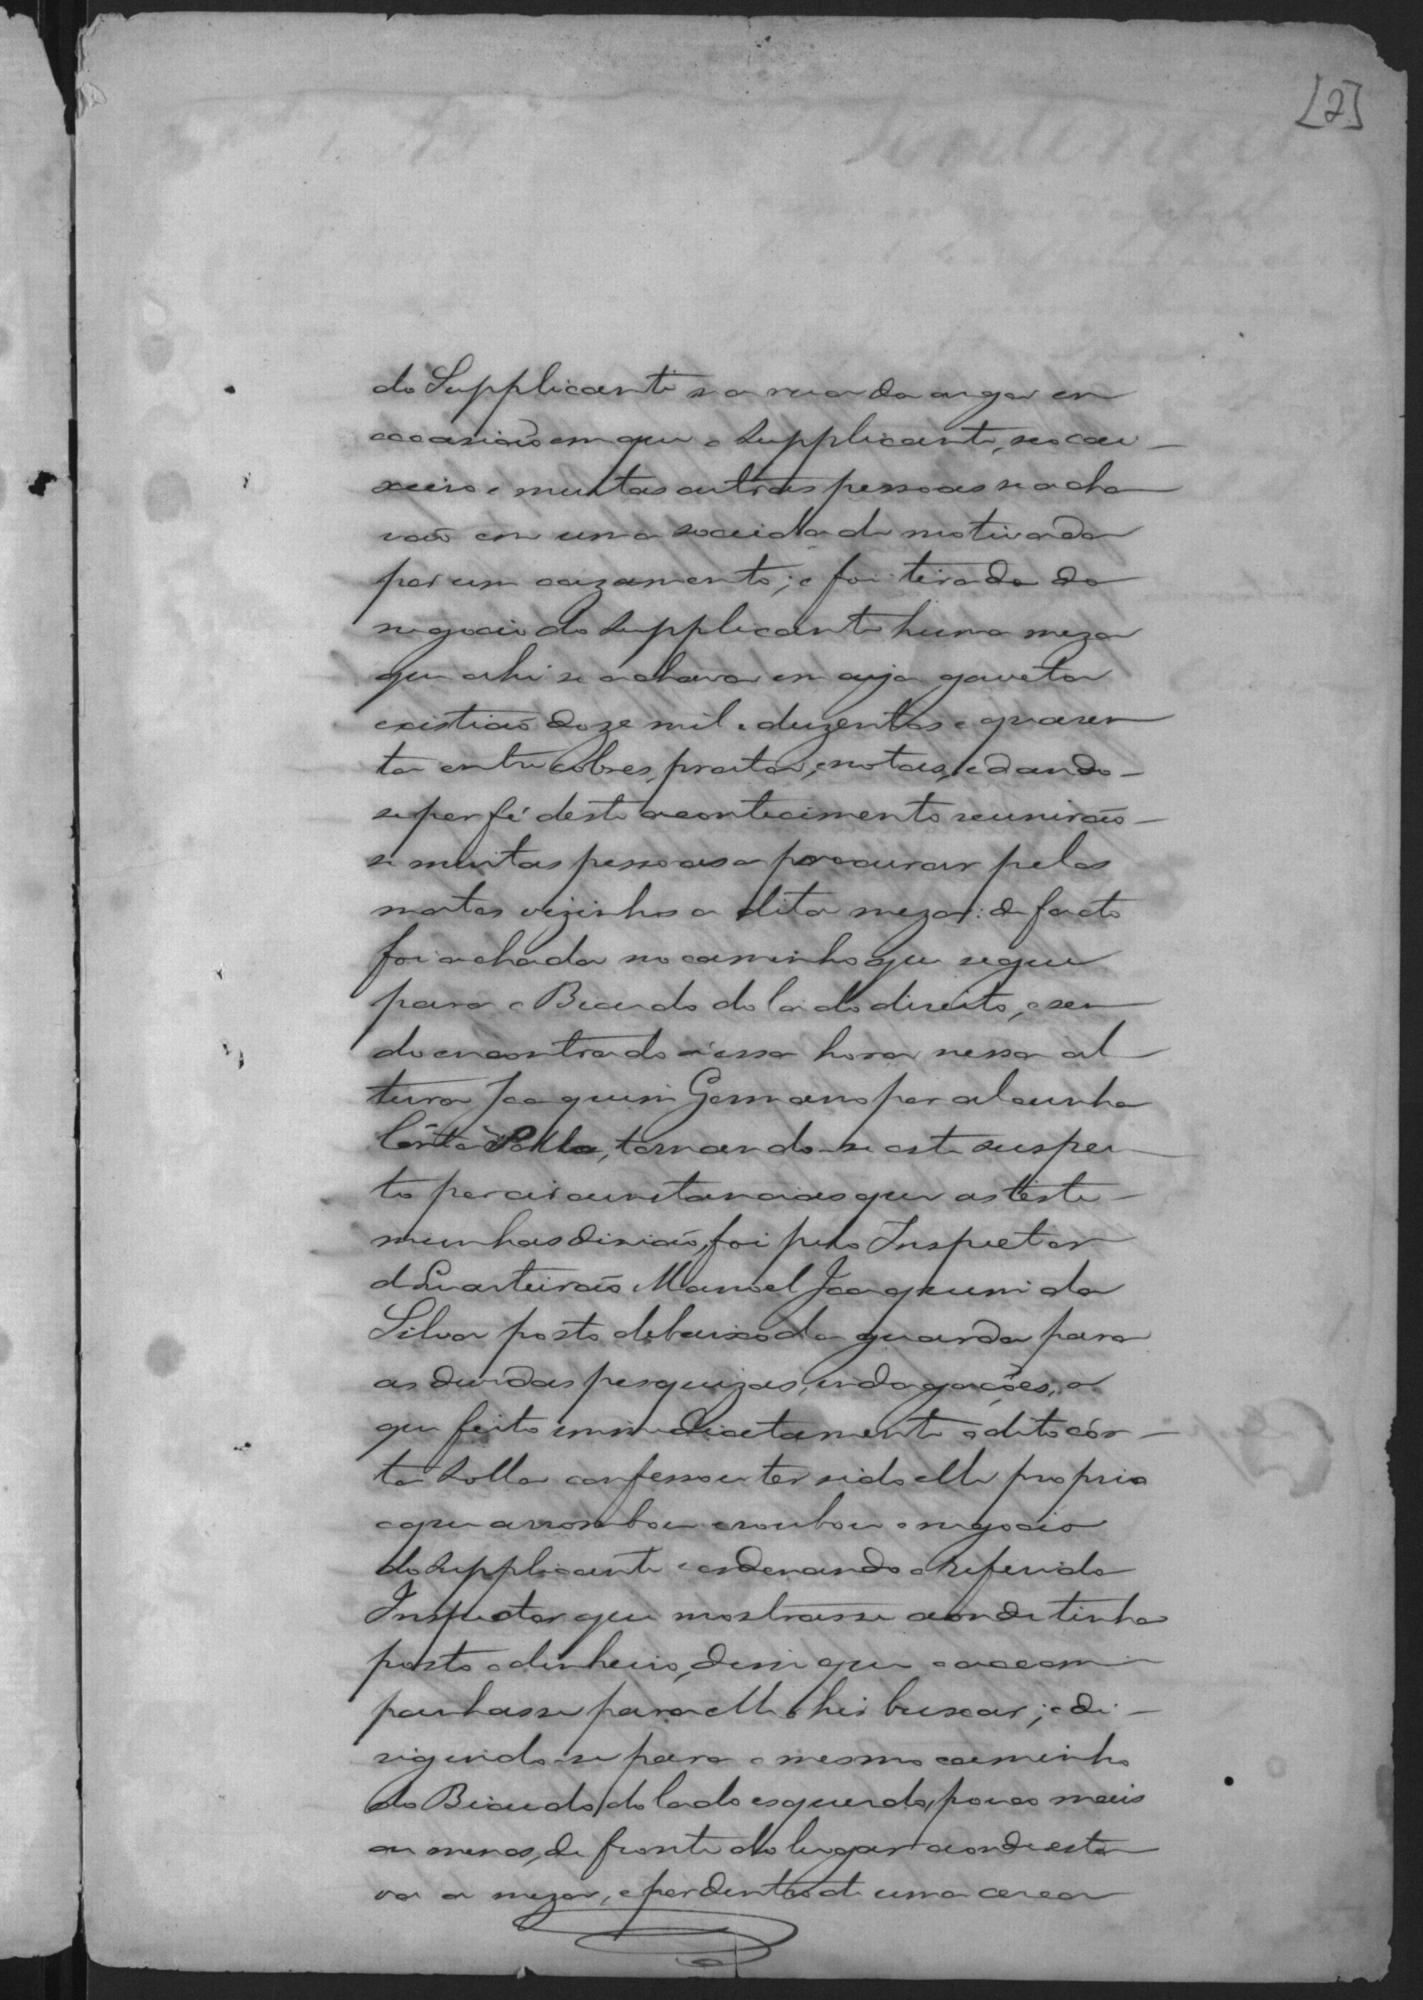 [2]
do Supplicante na rua da
occasião em que o Supplicante, seo cai-
xeiro e muntas outras pessoas se acha
vão em uma sociedade motivada
por um cazamento; e foi tirada do
negocio do Supplicante huma meza
que ahi se achava em cuja gaveta
existião doze mil e duzentos e quaren
ta entre cobres, prata, e notas, e dando-
se por fé deste acontecimento reunirão-
se muitas pessoas a procurar pelos
matos vizinhos a dita meza: de facto
foi achada no caminho que segue
para o Bicudo do lado direito, e sen
do encontrado a essa hora nessa al
tura Joaquim Germano por alcunha
Córta Solla, tornando-se este suspei
to por circunstancias que as teste-
munhas dirião, foi pelo Inspector
de Quarteirão Manoel Joaquim da
Silva posto debaixo da guarda para
as devidas pesquizas, indagações, o
que feito immediatamente o dito cór-
ta Solla confessou ter sido elle proprio
o que arrombou e roubou o negocio
do Supplicante e ordenando o referido
Inspector que mostrasse aonde tinha
posto o dinheiro, disse que o acom
panhasse para elle o hir buscar; e di-
rigindo-se para o mesmo caminho
do Bicudo, do lado esquerdo, pouco mais
ou menos, de fronte do lugar aonde esta
va a meza, e por dentro de uma cerca